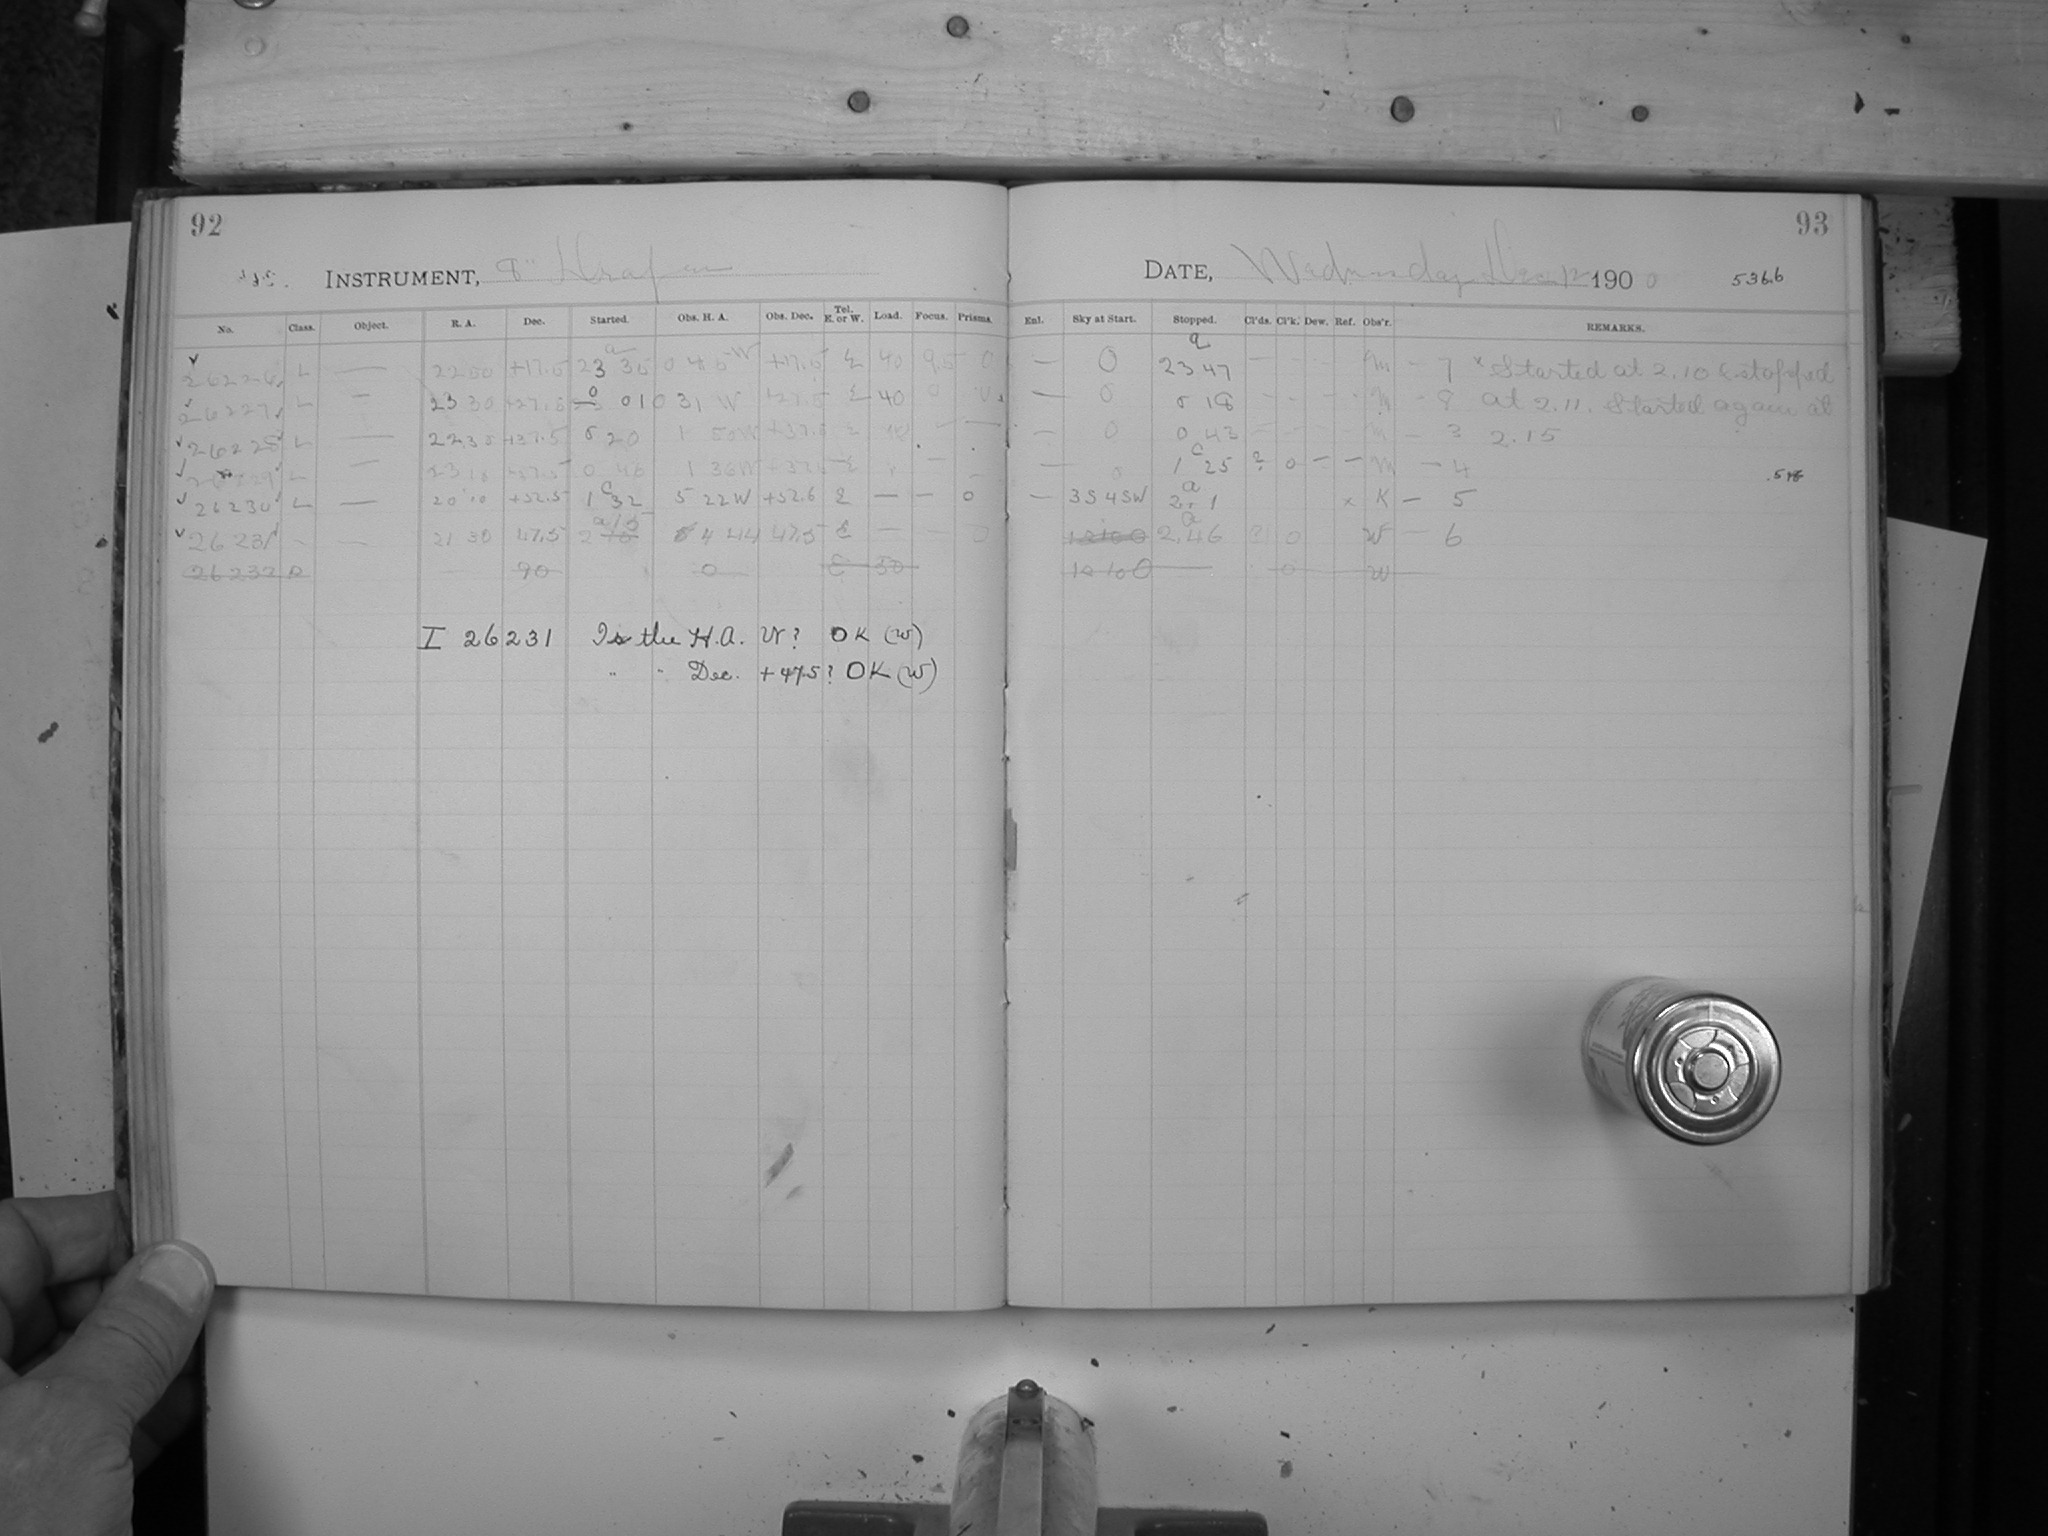 92
INSTRUMENT, 8" Draper
No. Class. Object. R. A. Dec. Started. Obs. H. A. Obs. Dec. Tel. E. or W. Load. Focus. Prisms.
26226 L — 22 50 +17.5 23 35 0 45 W +17.5 E 40 9.5 0
26227 L — 23 30 +27.5 0 01 0 31 W +27.5 E 40 0 0
26228 L — 22 30 +37.5 0 20 1 50 W +37.5 E
L — 0 46 1 36 W E
26230 L — 20 10 +52.5 1 32 5 22 W +52.6 E — — 0
26231 - — 21 30 47.5 2 15 4 44 47.5 E — — 0
26232 R 90 0 E 50
I 26231 Is the H.A. W? OK (W)
" " Dec. +47.5? OK (W)
93
DATE, Wednesday Dec. 12 1900 5366
Enl. Sky at Start. Stopped. Cl'ds. Cl'k. Dew. Ref. Obs'r. REMARKS.
— 0 23 47 — - - - M — 7 × Started at 2.10 & stopped
— 0 0 18 — - - - M — 8 at 2.11. Started again at
— 0 0 43 — - - - M — 3 2.15
— 0 1 25 2 0 — — M — 4
— 3S 4SW 2 1 × K — 5
2.46 0 W — 6
10 10 0 — 0 W